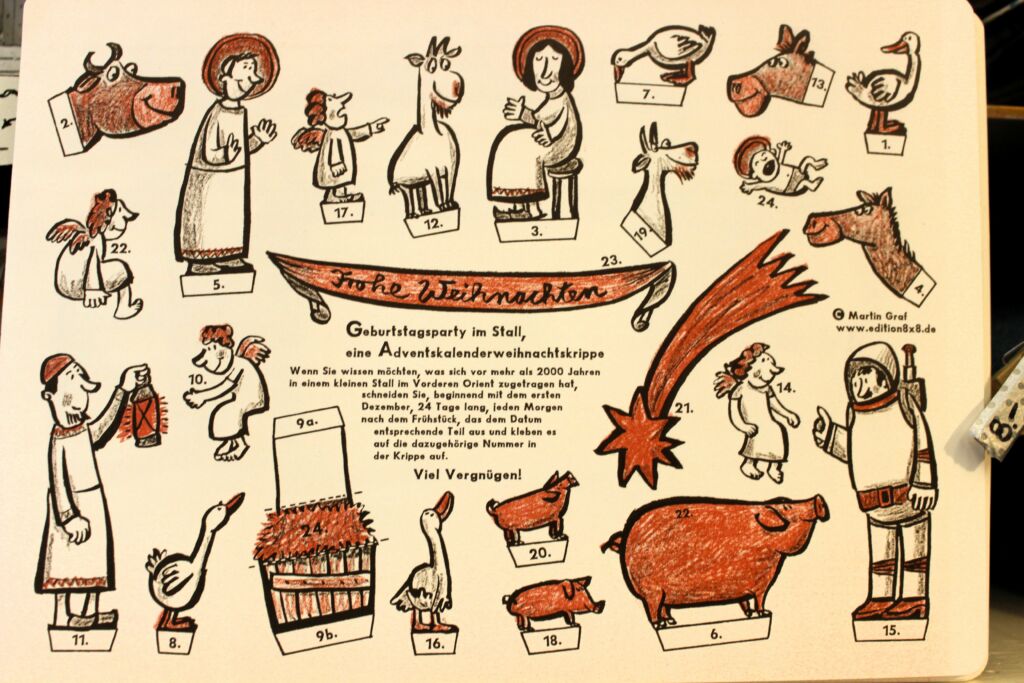 2.
5.
17.
12.
3.
7.
13.
1.
24.
19.
4.
22.
23.
Frohe Weihnachten
© Martin Graf
www.edition8x8.de
Geburtstagsparty im Stall,
eine Adventskalenderweihnachtskrippe
Wenn Sie wissen möchten, was sich vor mehr als 2000 Jahren
in einem kleinen Stall im Vorderen Orient zugetragen hat,
schneiden Sie, beginnend mit dem ersten
Dezember, 24 Tage lang, jeden Morgen
nach dem Frühstück, das dem Datum
entsprechende Teil aus und kleben es
auf die dazugehörige Nummer in
der Krippe auf.
Viel Vergnügen!
10.
14.
21.
9a.
24.
9b.
11.
8.
16.
20.
18.
22.
6.
15.
8!